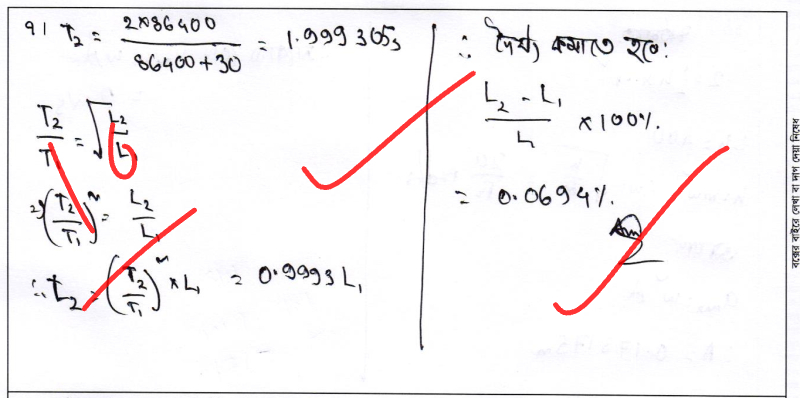 91 T₂ = 2×86400 / 86400+30 = 1.999305s
T₂/T₁ = √(L₂/L₁)
⇒ (T₂/T₁)² = L₂/L₁
∴ L₂ = (T₂/T₁)² × L₁ = 0.9993 L₁
∴ দৈর্ঘ্য কমাতে হবে:
L₂ - L₁ / L₁ × 100%.
= 0.0694%.
Ans
বক্সের বাইরে লেখা বা দাগ দেয়া নিষেধ